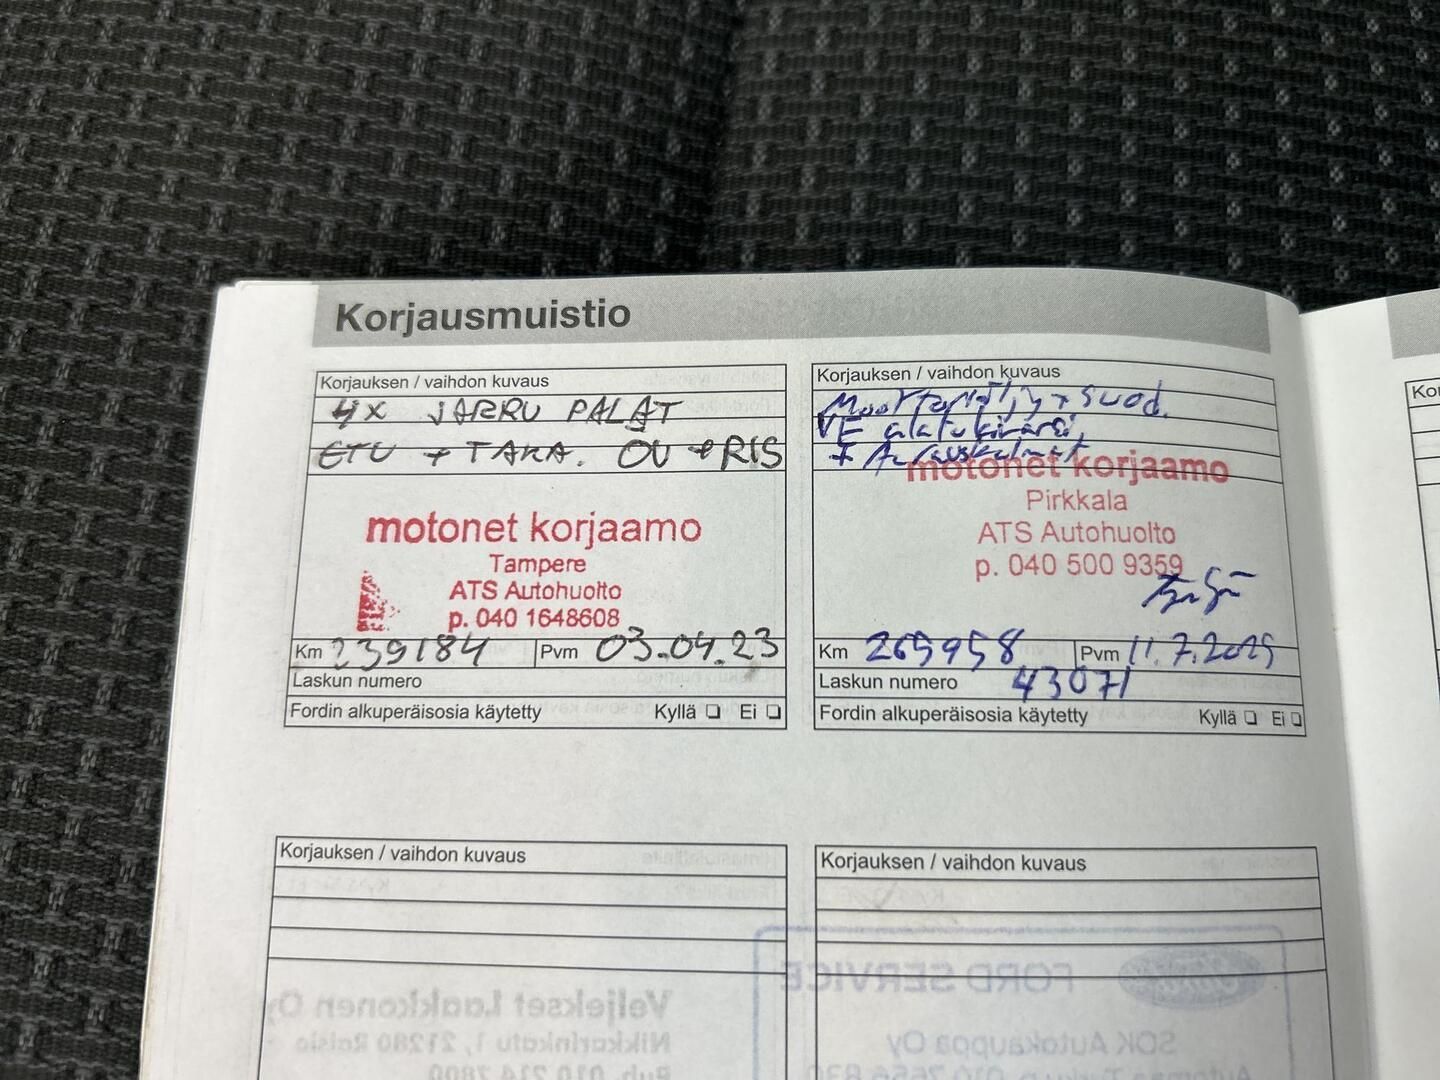 Korjausmuistio
Korjauksen / vaihdon kuvaus
4X JARRU PALAT
ETU + TAKA. OV + RIS
motonet korjaamo
Tampere
ATS Autohuolto
p. 040 1648608
Km 239184 Pvm 03.04.23
Laskun numero
Fordin alkuperäisosia käytetty Kyllä ❏ Ei ❏
Korjauksen / vaihdon kuvaus
Moottoriöljy + suod.
VE alatukivarsi
+ Aurauskulmat
motonet korjaamo
Pirkkala
ATS Autohuolto
p. 040 500 9359
Km 265958 Pvm 11.7.2025
Laskun numero 43071
Fordin alkuperäisosia käytetty Kyllä ❏ Ei ❏
Korjauksen / vaihdon kuvaus
Korjauksen / vaihdon kuvaus